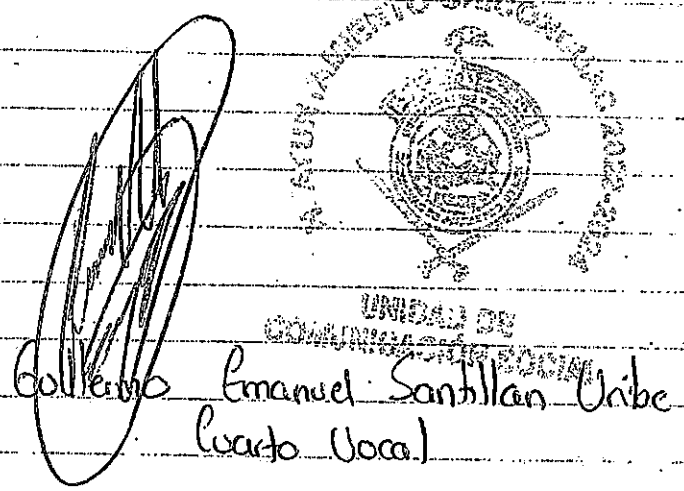 UNIDAD DE
COMUNICACIÓN SOCIAL
Guillermo Emanuel Santillan Uribe
Cuarto Vocal